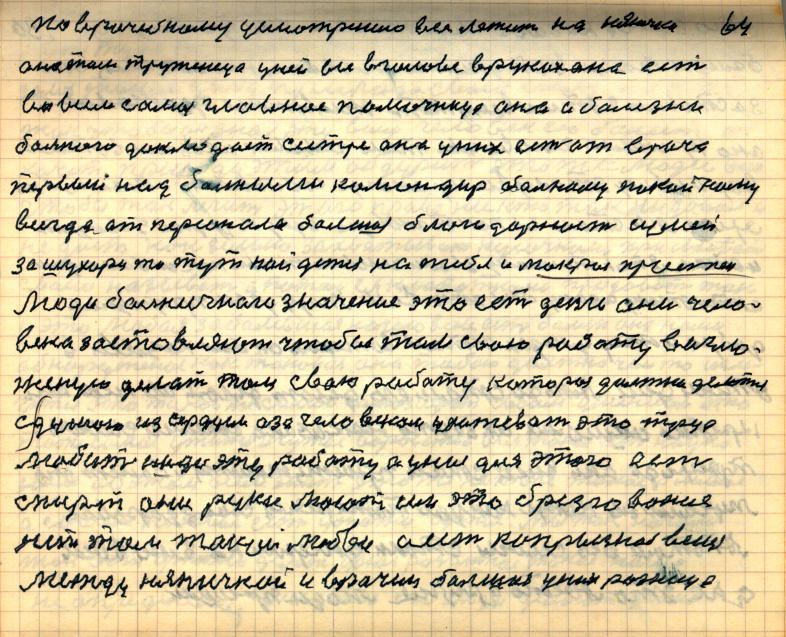 по врачебному усмотрению все лежит на нянички 64
она там труженеца уней все вголове вруках она ест
самы главнае памочнице она о балезни
балного докладает сестре она уних ест от врача
первый над балными командир балному покойному
всегда от персонала балшая благодарност сумей
за шухори то тут найдется на тебя и мокрая простня
Люди балничнаго значение это ест дети они чело-
века заставляют чтобы там сваю работу возло-
женую делат там сваю работу которая должна делатся
сдушою из сердцем а за человеком ухаживат это труд
любит надо эту работу а уних для этого ест
спирт они руки моют им это брезгование
нет там такой любви а ест капрызная вещ
между няничкой и врачим балшая уних разница